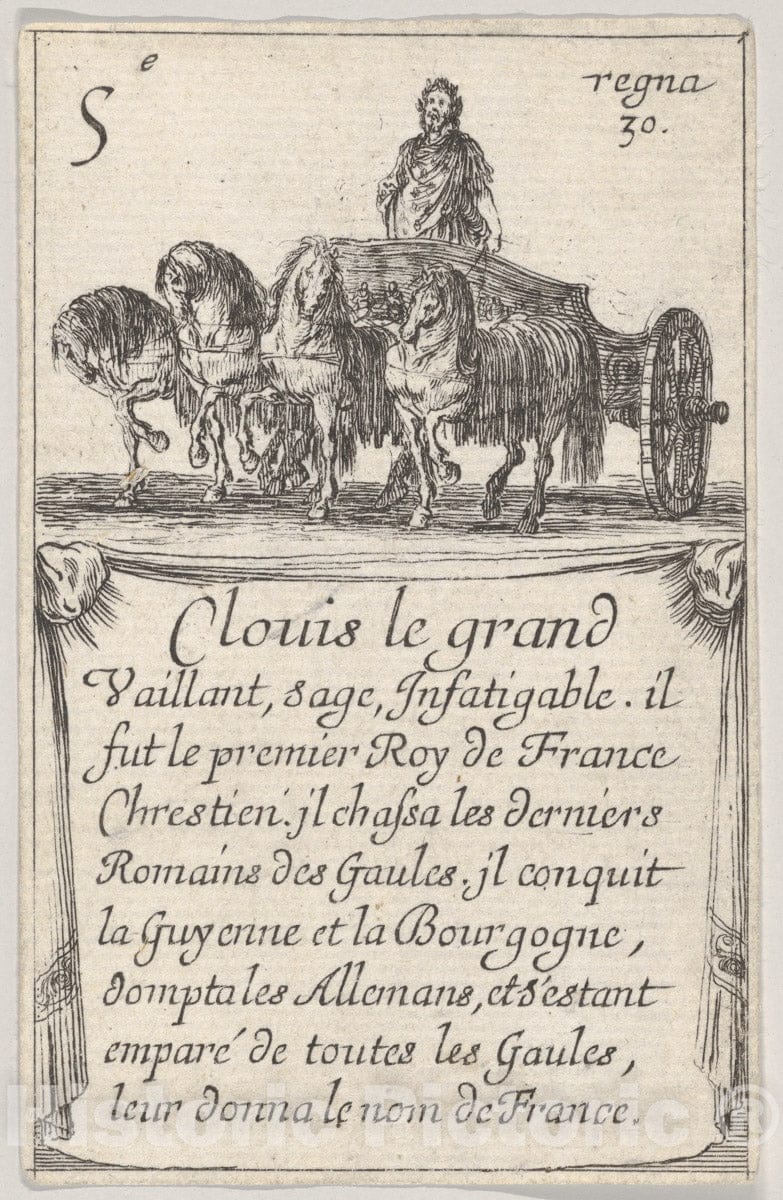 Sᵉ
regna
30.
Clouis le grand
Vaillant, sage, Infatigable. il
fut le premier Roy de France
Chrestien. jl chaſsa les derniers
Romains des Gaules. jl conquit
la Guyenne et la Bourgogne,
dompta les Allemans, et s'estant
emparé de toutes les Gaules,
leur donna le nom de France.
Historic Pictoric ®